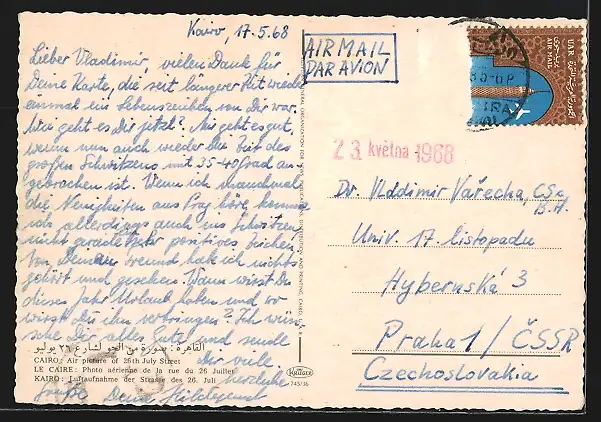 Kairo, 17.5.68
Lieber Vladimir, vielen Dank für
Deine Karte, die seit längerer Zeit wieder
einmal ein Lebenszeichen von Dir war.
Wie geht es Dir jetzt? Mir geht es gut,
wenn nun auch wieder die Zeit des
großen Schwitzens mit 35-40 Grad an-
gebrochen ist. Wenn ich manchmal
die Neuigkeiten aus Prag höre, komme
ich allerdings auch ins Schwitzen
nicht gerade positives Zeichen.
Von Freund habe ich nichts
gehört und gesehen. Wann wirst Du
dieses Jahr Urlaub haben und wo
wirst Du ihn verbringen? Ich wün-
sche Dir alles Gute und sende
Dir viele
herzliche
Grüße Deine
القاهرة : صورة من الجو لشارع ٢٦ يوليو
CAIRO: Air picture of 26th July Street
LE CAIRE: Photo aérienne de la rue du 26 Juillet
KAIRO: Luftaufnahme der Strasse des 26. Juli
745/36
AIR MAIL
PAR AVION
UAR
AIR MAIL
23. května 1968
Dr. Vladimir Vařecha, CSc.
Univ. 17. listopadu
Hybernská 3
Praha 1 / ČSSR
Czechoslovakia